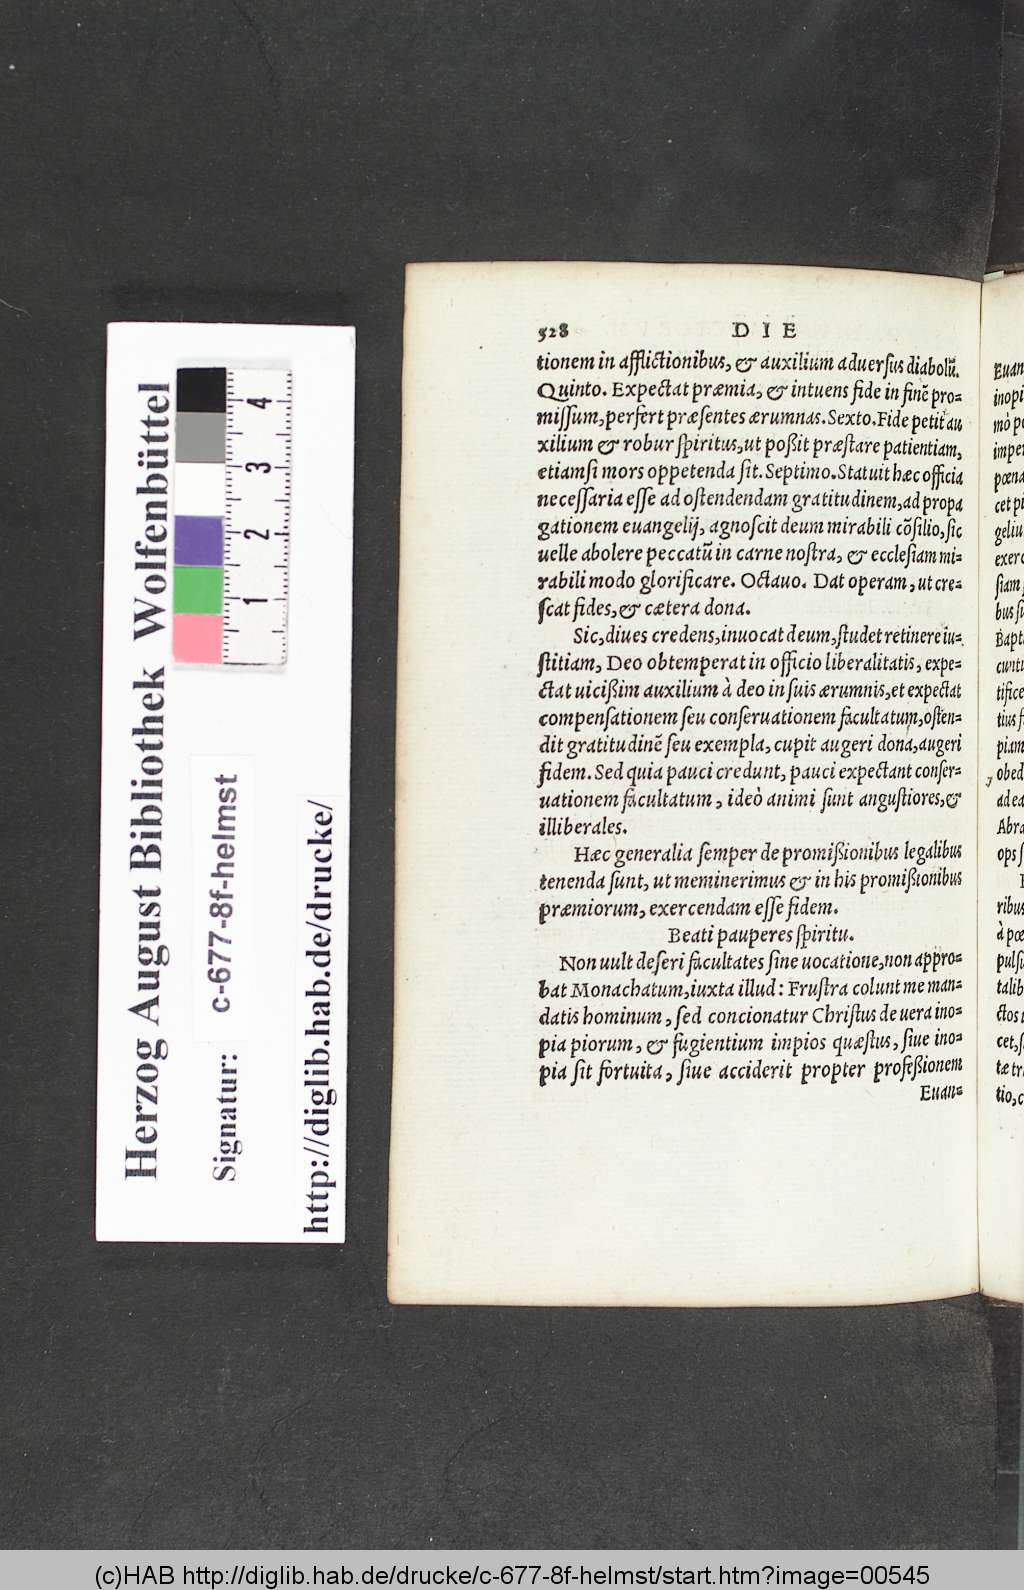 528 DIE
tionem in afflictionibus, & auxilium aduerſus diabolũ.
Quinto. Expectat præmia, & intuens fide in finẽ pro=
miſſum, perfert præſentes ærumnas. Sexto. Fide petit au
xilium & robur ſpiritus, ut poßit præſtare patientiam,
etiamſi mors oppetenda ſit. Septimo. Statuit hæc officia
neceſſaria eſſe ad oſtendendam gratitudinem, ad propa
gationem euangelij, agnoſcit deum mirabili cõſilio, ſic
uelle abolere peccatũ in carne noſtra, & eccleſiam mi=
rabili modo glorificare. Octauo. Dat operam, ut cre=
ſcat fides, & cætera dona.
Sic, diues credens, inuocat deum, ſtudet retinere iu=
ſtitiam, Deo obtemperat in officio liberalitatis, expe=
ctat uicißim auxilium à deo in ſuis ærumnis, et expectat
compenſationem ſeu conſeruationem facultatum, oſten=
dit gratitudinẽ ſeu exempla, cupit augeri dona, augeri
fidem. Sed quia pauci credunt, pauci expectant conſer=
uationem facultatum, ideò animi ſunt anguſtiores, &
illiberales.
Hæc generalia ſemper de promißionibus legalibus
tenenda ſunt, ut meminerimus & in his promißionibus
præmiorum, exercendam eſſe fidem.
Beati pauperes ſpiritu.
Non uult deſeri facultates ſine uocatione, non appro=
bat Monachatum, iuxta illud: Fruſtra colunt me man=
datis hominum, ſed concionatur Chriſtus de uera ino=
pia piorum, & fugientium impios quæſtus, ſiue ino=
pia ſit fortuita, ſiue acciderit propter profeßionem
Euan=
Herzog August Bibliothek Wolfenbüttel
Signatur: c-677-8f-helmst
http://diglib.hab.de/drucke/
1 2 3 4
(c)HAB http://diglib.hab.de/drucke/c-677-8f-helmst/start.htm?image=00545